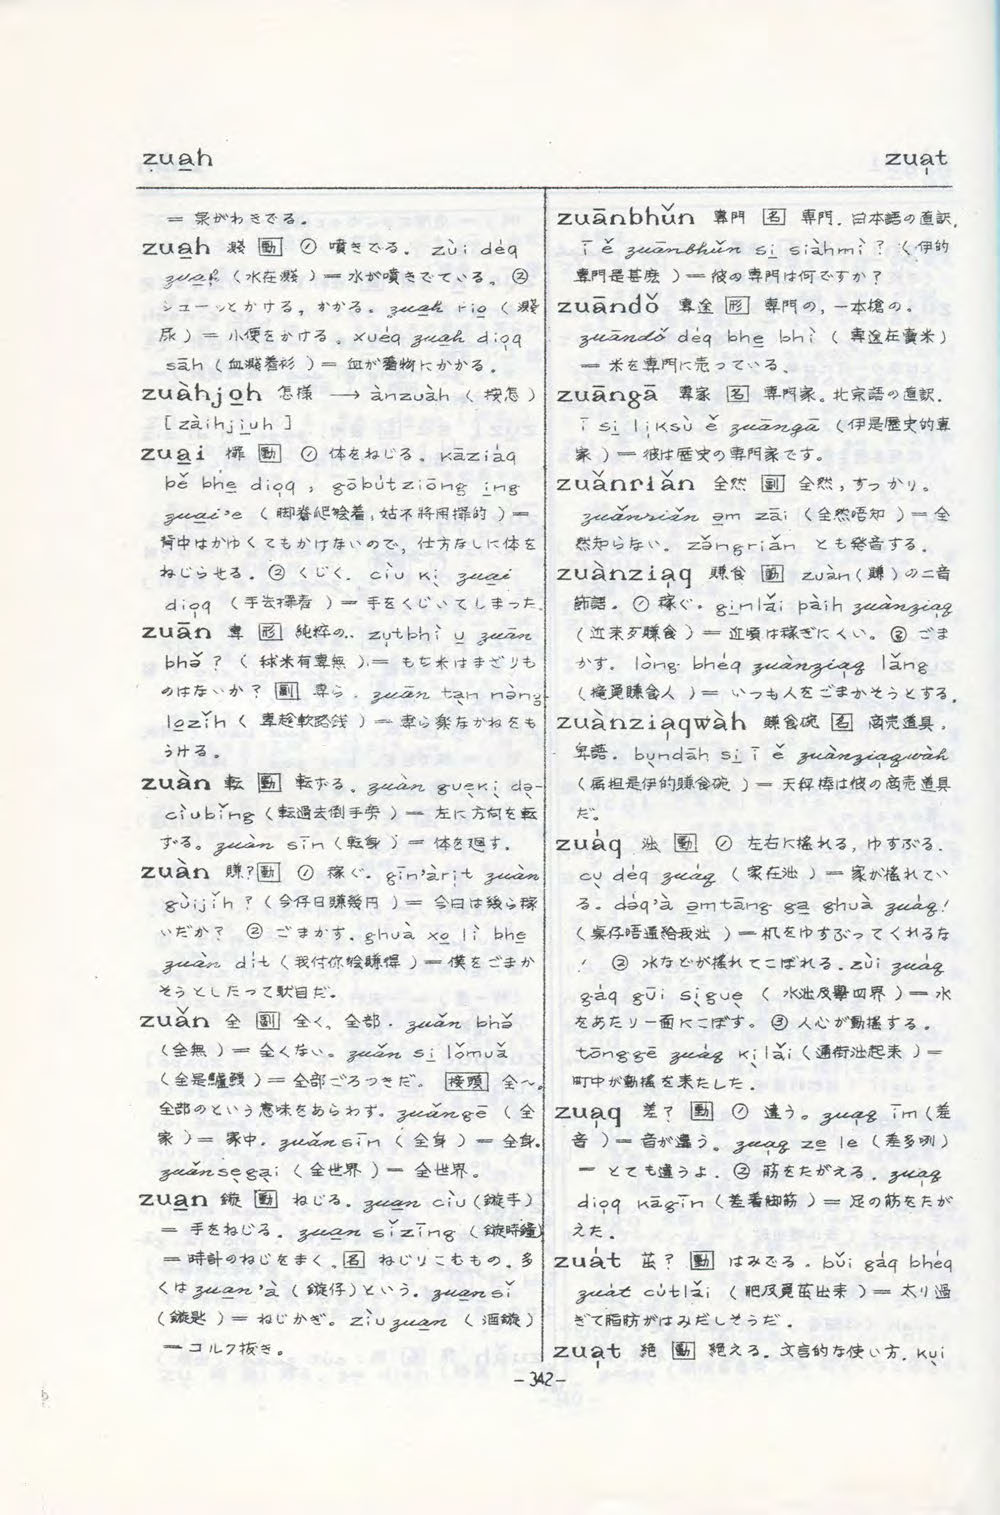 zua̱h
zua̩t
= 泉がわきでる。
zua̱h 濺 動 ① 噴きでる。zùi déq
zua̱h (水在濺) = 水が噴きでている。②
シューッとかける, かかる。zua̱h rio̱ (濺
尿) = 小便をかける。xuéq zua̱h dio̩q
sāh (血濺着衫) = 血が着物にかかる。
zuàhjo̱h 怎様 ⟶ ànzuàh (按怎)
[zàihji̱uh]
zua̱i 動 ① 体をねじる。kāziáq
bě bhe̱ dio̩q, gōbútziōng i̱ng
zua̱i'e
背中はかゆくてもかけないので, 仕方なしに体を
ねじらせる。② くじく. ciu ki zua̱i
dio̩q = 手をくじいてしまった.
zuān 専 形 純粋の. zu̩tbhì u̱ zuān
bhǒ? (秫米有専無) = もち米はまざりも
のはないか? 副 専ら. zuān ta̱n nàng-
lo̱zǐh (専趁軟路銭) = 専ら楽なかねをも
うける。
zuàn 転 動 転ずる。zuàn guèki dò-
ciubǐng (転過去倒手旁) = 左に方向を転
ずる。zuàn sīn (転身) = 体を廻す.
zuàn 賺? 動 ① 稼ぐ. gīn'àri̩t zuàn
gùijǐh? (今仔日賺幾円) = 今日は幾ら稼
いだか? ② ごまかす. ghuà xo̱ lì bhe̱
zuàn dit (我付你𣍐賺得) = 僕をごまか
そうとしたって駄目だ.
zuǎn 全 副 全く, 全部. zuǎn bhǒ
(全無) = 全くない。zuǎn si̱ lǒmuǎ
(全是鱸鰻) = 全部ごろつきだ。 接頭 全~。
全部のという意味をあらわす。zuǎngē (全
家) = 家中. zuǎnsīn (全身) = 全身.
zuǎnse̱gai (全世界) = 全世界。
zua̱n 鏇 動 ねじる. zua̱n ciù (鏇手)
= 手をねじる. zua̱n sǐzīng (鏇時鐘)
= 時計のねじをまく. 名 ねじりこむもの. 多
くは zua̱n'à (鏇仔) という. zua̱nsǐ
(鏇匙) = ねじかぎ。zìuzua̱n (酒鏇)
= コルク抜き。
zuānbhǔn 専門 名 専門. 日本語の直訳.
ī ě zuānbhǔn si̱ siàhmì? (伊的
専門是甚麽) = 彼の専門は何ですか?
zuāndǒ 専途 形 専門の, 一本槍の.
zuāndǒ déq bhe̱ bhì (専途在賣米)
= 米を専門に売っている.
zuāngā 専家 名 専門家. 北京語の直訳.
ī si̱ li̩ksù ě zuāngā (伊是歴史的専
家) = 彼は歴史の専門家です。
zuǎnriǎn 全然 副 全然, すっかり.
zuǎnriǎn ə̱m zāi (全然唔知) = 全
然知らない. zǒngriǎn とも発音する.
zuànzia̩q 賺食 動 zuàn(賺)の二音
節語。① 稼ぐ. gi̱nlǎi pàih zuànzia̩q
(近来歹賺食) = 近頃は稼ぎにくい。② ごま
かす. lòng bhéq zuànzia̩q lǎng
(攏覓賺食人) = いつも人をごまかそうとする.
zuànzia̩qwàh 賺食碗 名 商売道具.
卑語. bundāh si̱ ī ě zuànzia̩qwàh
(扁担是伊的賺食碗) = 天秤棒は彼の商売道具
だ.
zuáq 泏 動 ① 左右に搖れる, ゆすぶる.
cu déq zuáq (家在泏) = 家が搖れてい
る. dóq'à ə̱mtāng ga̱ ghuà zuáq!
(桌仔唔通給我泏) = 机をゆすぶってくれるな
! ② 水などが搖れてこぼれる. zùi zuáq
gáq gūi sigue (水泏及擧四界) = 水
をあたり一面にこぼす. ③ 人心が動搖する.
tōnggē zuáq kilǎi (通街泏起来) =
町中が動搖を来たした.
zua̩q 差? 動 ① 違う. zua̩q īm (差
音) = 音が違う。zua̩q ze̱ le (差多咧)
= とても違うよ. ② 筋をたがえる. zua̩q
dio̩q kāgīn (差着脚筋) = 足の筋をたが
えた.
zuát 茁? 動 はみでる. bǔi gáq bhéq
zuát cútlǎi (肥及覓茁出来) = 太り過
ぎて脂肪がはみだしそうだ.
zua̩t 絶 動 絶える. 文言的な使い方. kui
– 342 –